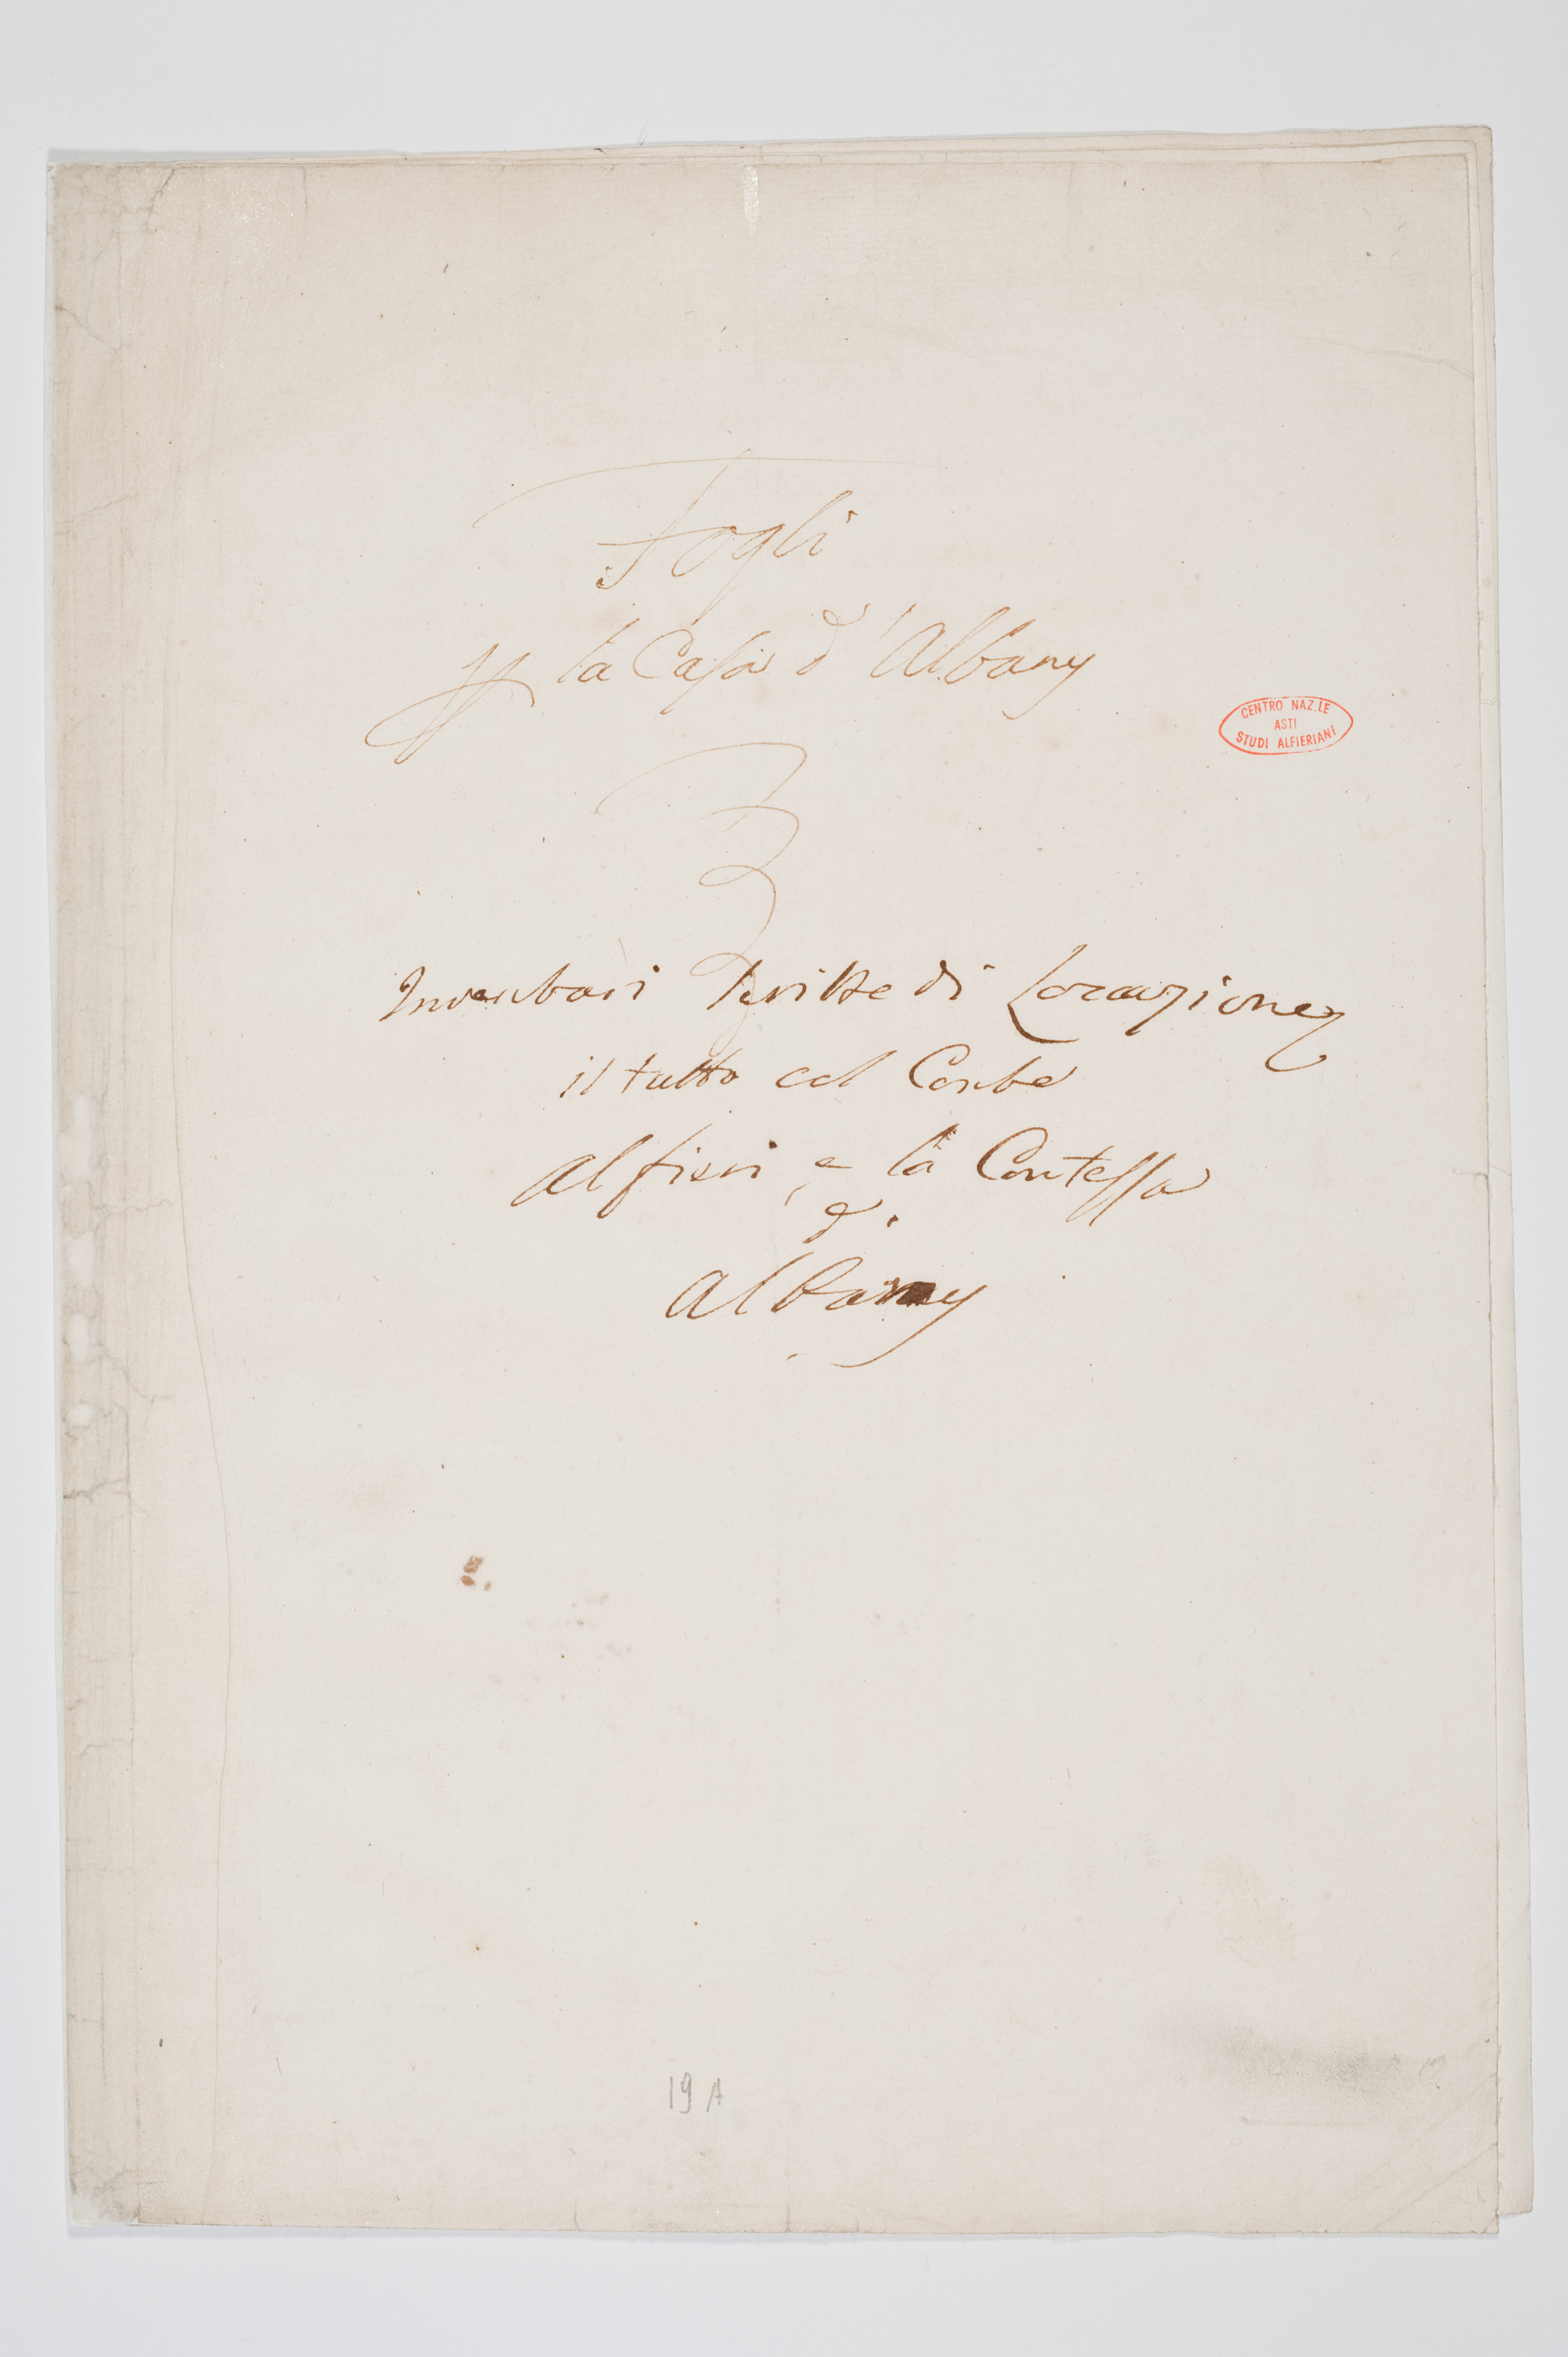 Fogli
la Casa d'Albany
CENTRO NAZ.LE
ASTI
STUDI ALFIERIANI
Inventari Scritte di Locazione
il tutto col Conte
Alfieri e la Contessa
d'
Albany
19 A